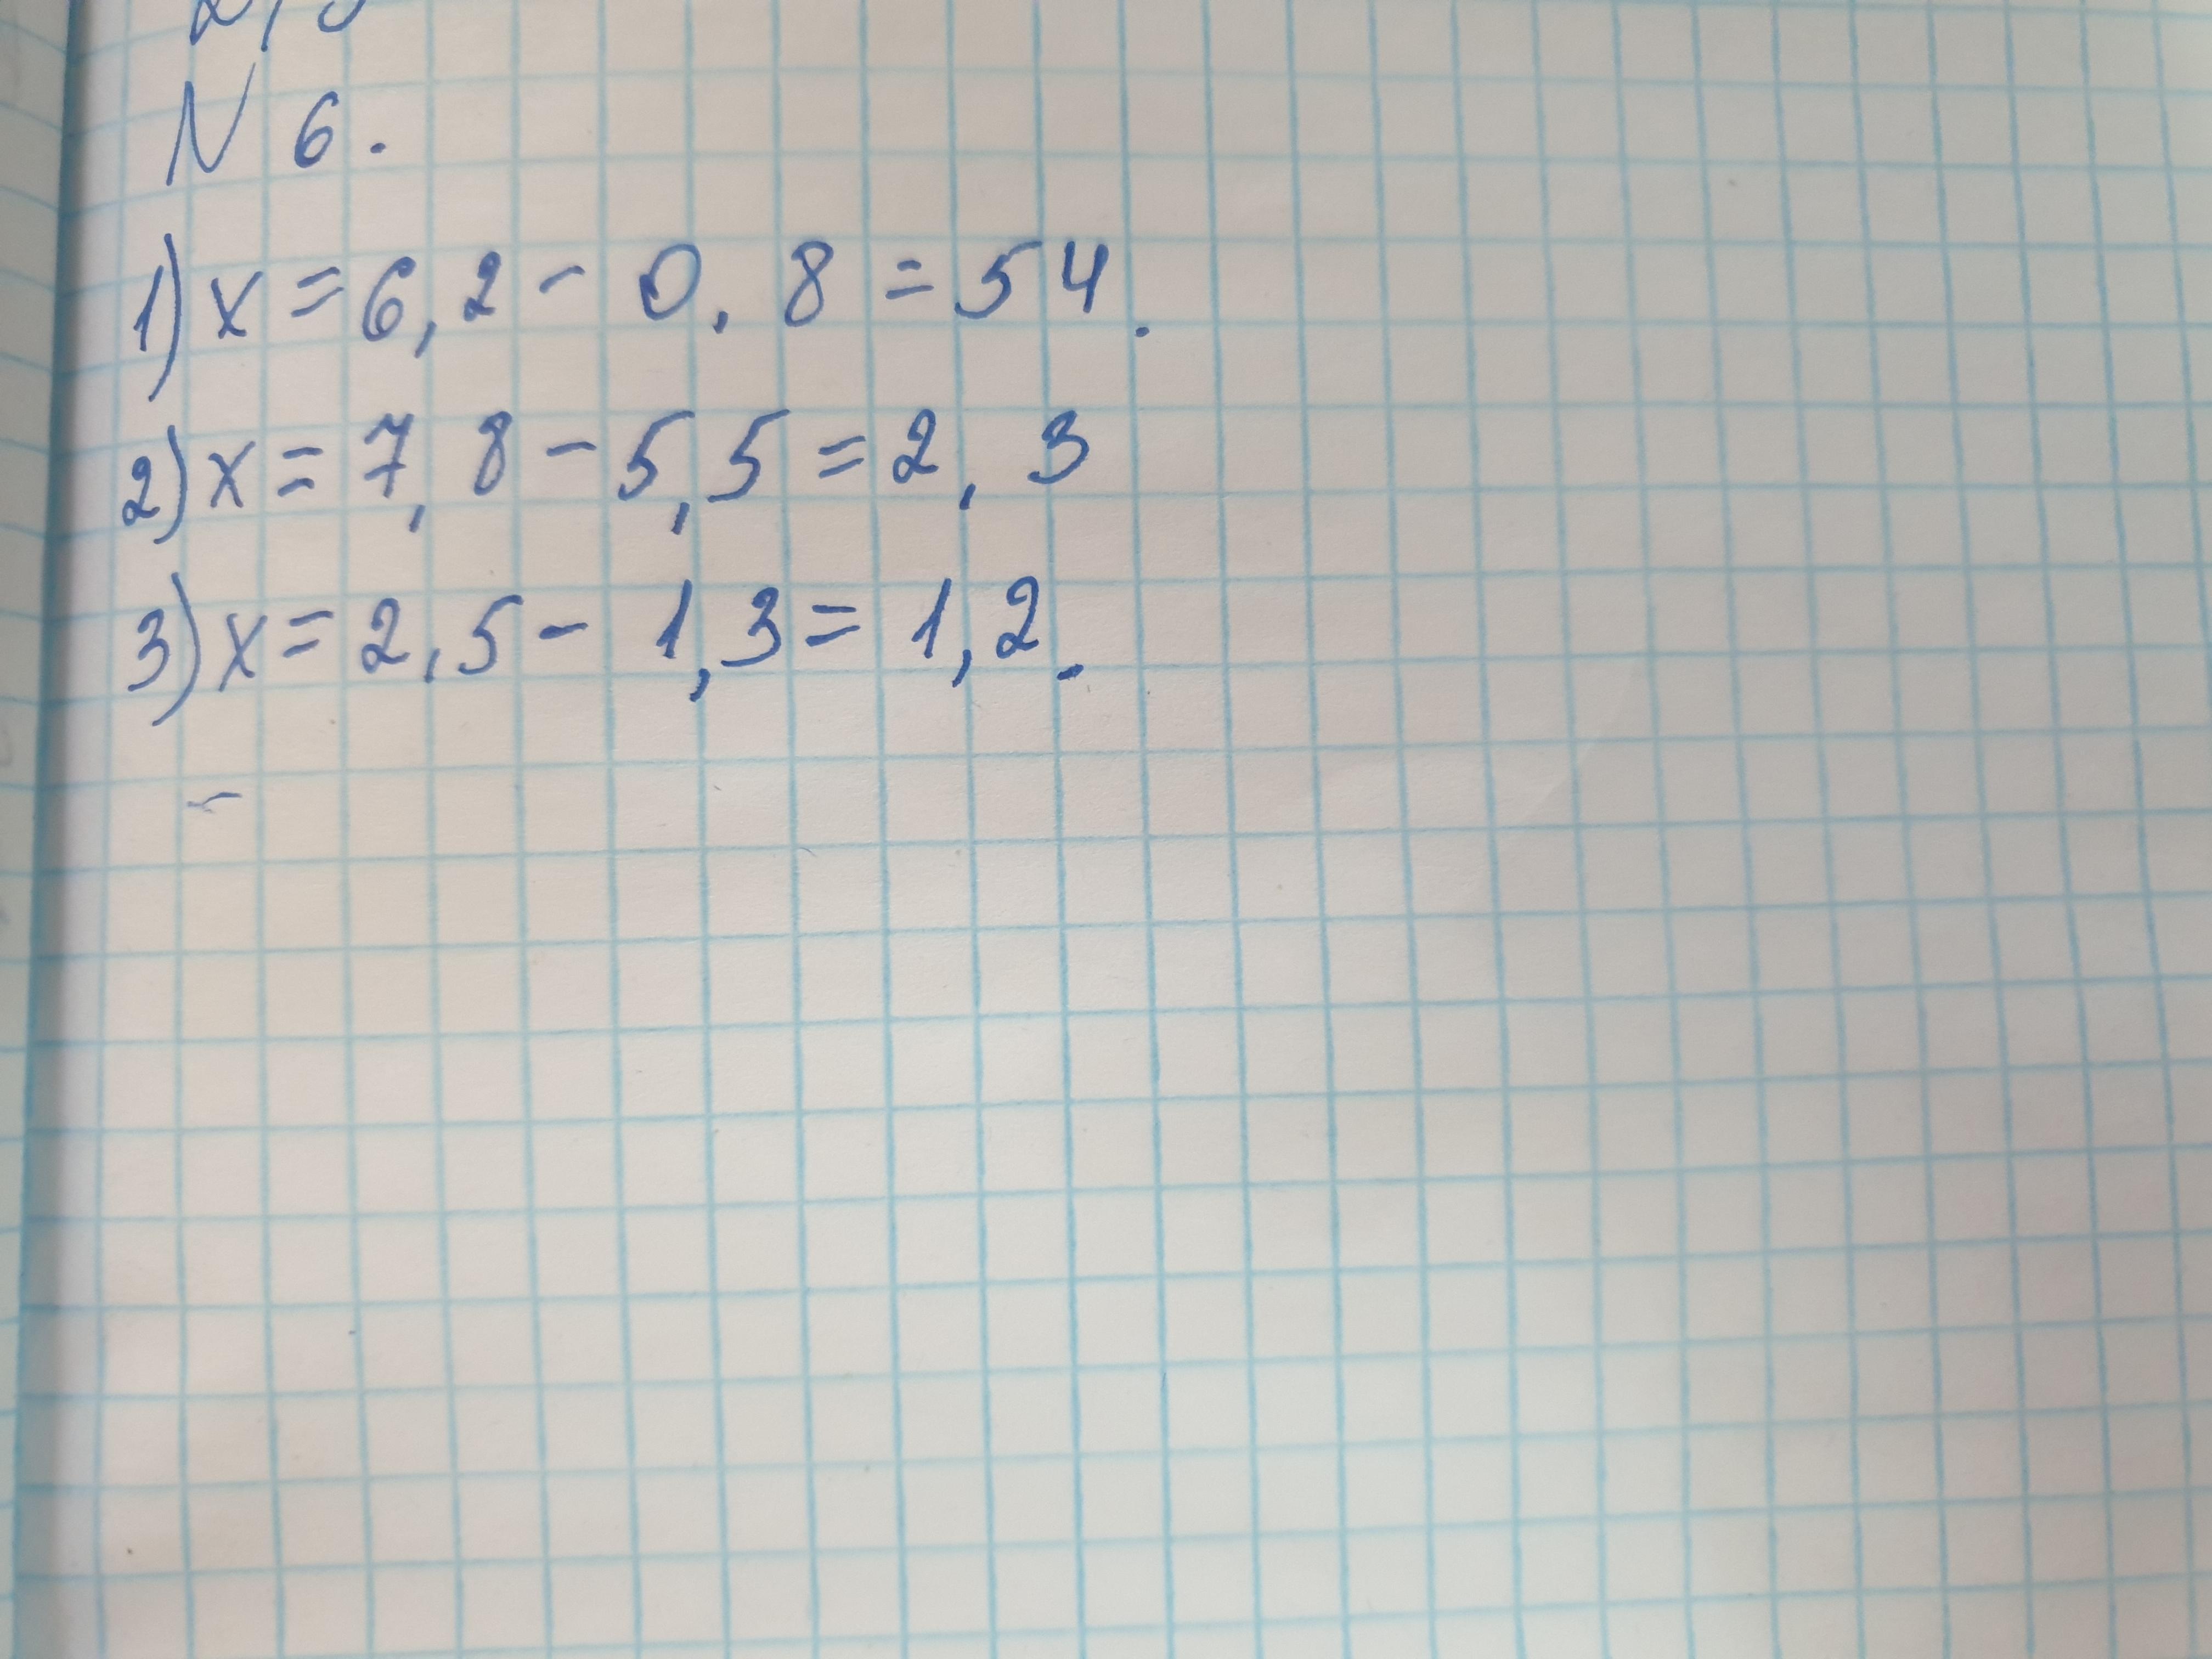 N 6.
1) x = 6,2 - 0,8 = 54.
2) x = 7,8 - 5,5 = 2,3
3) x = 2,5 - 1,3 = 1,2.